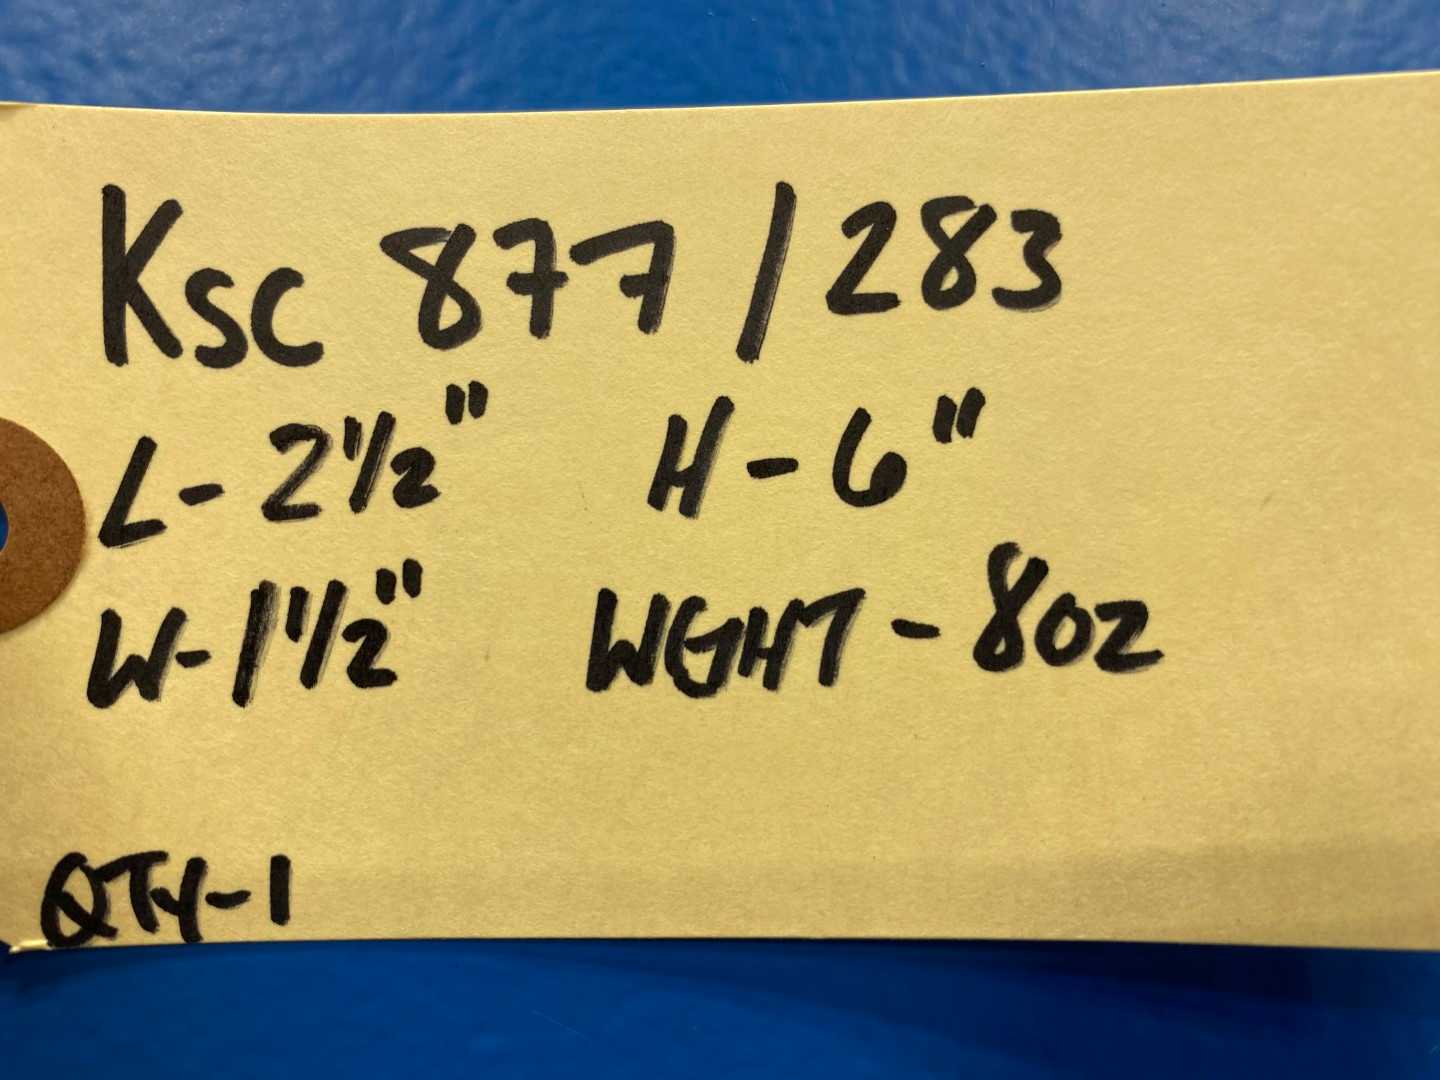 Ksc 877/283
L-2 1/2" H-6"
W-1 1/2" WGHT-8oz
QTY-1